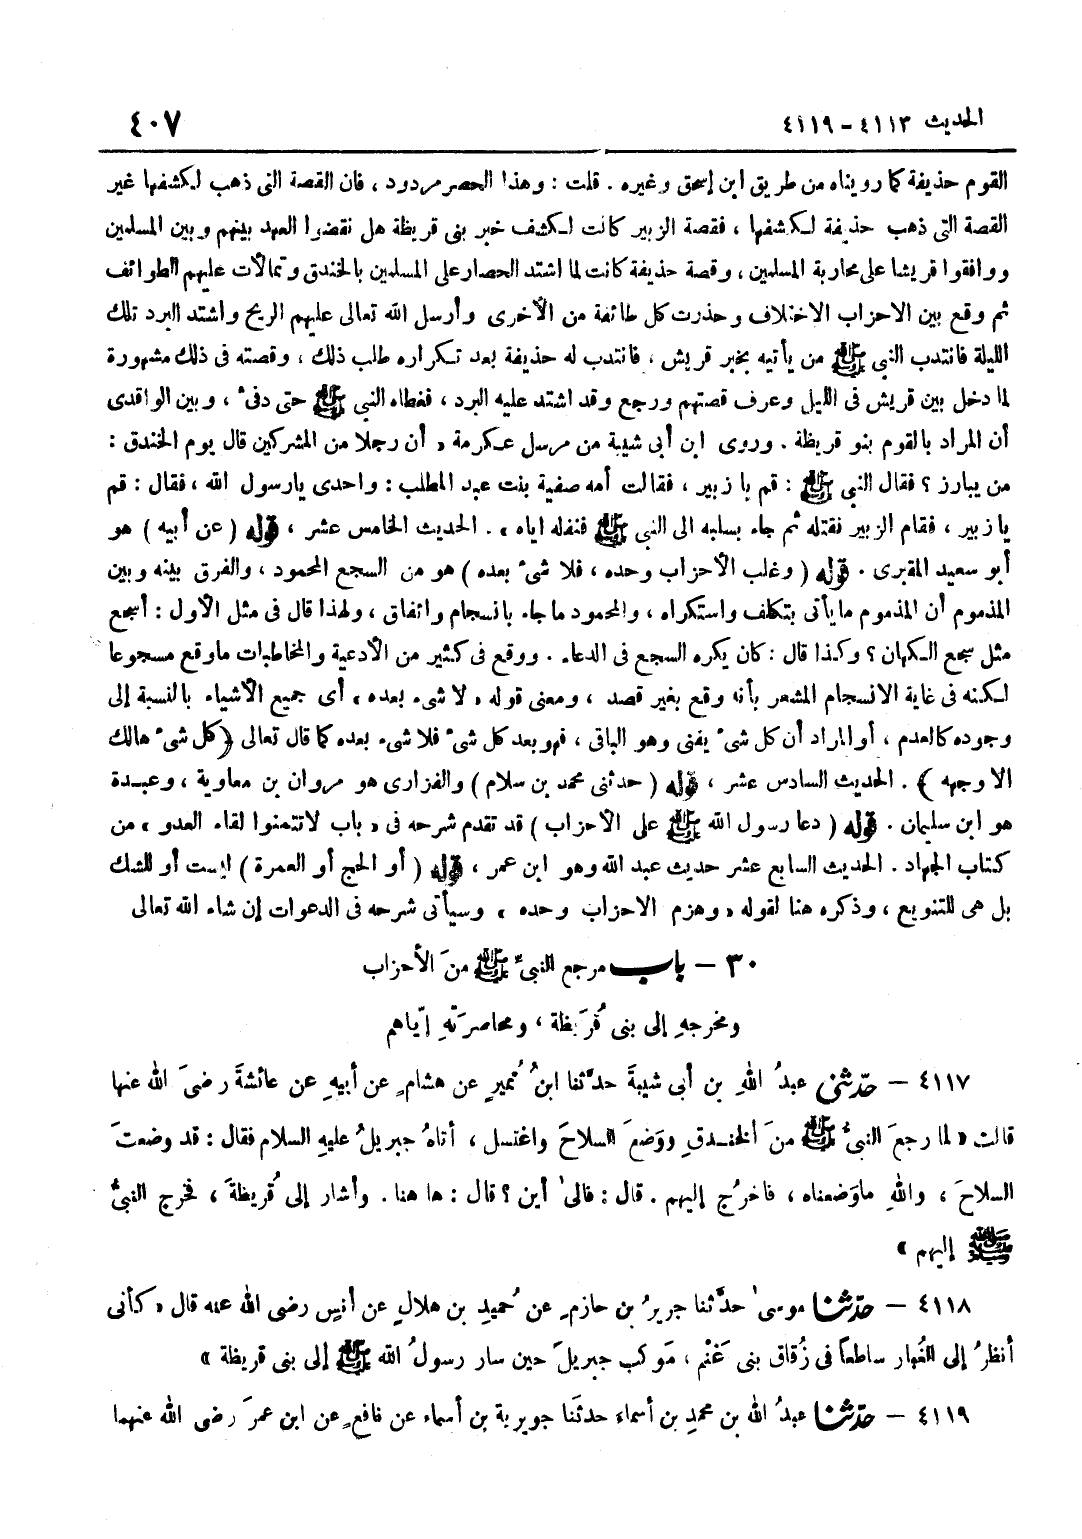 الحديث ٤١١٣ - ٤١١٩
٤٠٧
القوم حذيفة كما رويناه من طريق ابن إسحق وغيره . قلت : وهذا الحصر مردود ، فان القصة التى ذهب لكشفها غير
القصة التى ذهب حذيفة لكشفها ، فقصة الزبير كانت لكشف خبر بنى قريظة هل نقضوا العهد بينهم وبين المسلمين
ووافقوا قريشا على محاربة المسلمين ، وقصة حذيفة كانت لما اشتد الحصار على المسلمين بالخندق وتمالأت عليهم الطوائف
ثم وقع بين الاحزاب الاختلاف وحذرت كل طائفة من الأخرى وأرسل الله تعالى عليهم الريح واشتد البرد تلك
الليلة فانتدب النبى ﷺ من يأتيه بخبر قريش ، فانتدب له حذيفة بعد تكراره طلب ذلك ، وقصته فى ذلك مشهورة
لما دخل بين قريش فى الليل وعرف قصتهم ورجع وقد اشتد عليه البرد ، فغطاه النبى ﷺ حتى دفئ ، وبين الواقدى
أن المراد بالقوم بنو قريظة . وروى ابن أبى شيبة من مرسل عكرمة « أن رجلا من المشركين قال يوم الخندق :
من يبارز ؟ فقال النبى ﷺ : قم يا زبير ، فقالت أمه صفية بنت عبد المطلب : واحدى يارسول الله ، فقال : قم
يا زبير ، فقام الزبير فقتله ثم جاء بسلبه الى النبى ﷺ فنفله اياه » . الحديث الخامس عشر ، قوله ( عن أبيه ) هو
أبو سعيد المقبرى . قوله ( وغلب الأحزاب وحده ، فلا شىء بعده ) هو من السجع المحمود ، والفرق بينه وبين
المذموم أن المذموم ما يأتى بتكلف واستكراه ، والمحمود ما جاء بانسجام واتفاق ، ولهذا قال فى مثل الأول : أسجع
مثل سجع الكهان ؟ وكذا قال : كان يكره السجع فى الدعاء . ووقع فى كثير من الأدعية والمخاطبات ماوقع مسجوعا
لكنه فى غاية الانسجام المشعر بأنه وقع بغير قصد ، ومعنى قوله « لا شىء بعده » أى جميع الأشياء بالنسبة إلى
وجوده كالعدم ، أو المراد أن كل شىء يفنى وهو الباقى ، فهو بعد كل شىء فلا شىء بعده كما قال تعالى ﴿ كل شىء هالك
الا وجهه ﴾ . الحديث السادس عشر ، قوله ( حدثنى محمد بن سلام ) والفزارى هو مروان بن معاوية ، وعبدة
هو ابن سليمان . قوله ( دعا رسول الله ﷺ على الأحزاب ) قد تقدم شرحه فى « باب لاتتمنوا لقاء العدو » من
كتاب الجهاد . الحديث السابع عشر حديث عبد الله وهو ابن عمر ، قوله ( أو الحج أو العمرة ) ليست أو للشك
بل هى للتنويع ، وذكره هنا لقوله « وهزم الاحزاب وحده » وسيأتى شرحه فى الدعوات إن شاء الله تعالى
٣٠ - باب مرجع النبىِّ ﷺ منَ الأحزاب
ومخرجهِ إلى بنى قُرَيظة ، ومحاصرَتهِ إيّاهم
٤١١٧ - حدّثنى عبدُ اللهِ بن أبى شيبةَ حدَّثنا ابنُ نُميرٍ عن هشامٍ عن أبيهِ عن عائشةَ رضىَ الله عنها
قالت « لما رجعَ النبىُّ ﷺ منَ الخندقِ ووَضعَ السلاحَ واغتسل ، أتاهُ جبريلُ عليهِ السلام فقال : قد وضعتَ
السلاحَ ، واللهِ ماوَضعناه ، فاخرُج إليهم . قال : فالى أين ؟ قال : ها هنا . وأشار إلى قُريظةَ ، فخرج النبىُّ
ﷺ إليهم »
٤١١٨ - حدّثنا موسى حدَّثنا جريرُ بن حازمٍ عن حُميدِ بن هلالٍ عن أنسٍ رضى الله عنه قال « كأنى
أنظرُ إلى الغُبار ساطعاً فى زُقاق بنى غَنْم ، مَوكب جبريلَ حين سار رسولُ الله ﷺ إلى بنى قريظة »
٤١١٩ - حدّثنا عبدُ الله بن محمدِ بن أسماء حدثَنا جويرية بن أسماء عن نافعٍ عن ابن عمرَ رضى الله عنهما